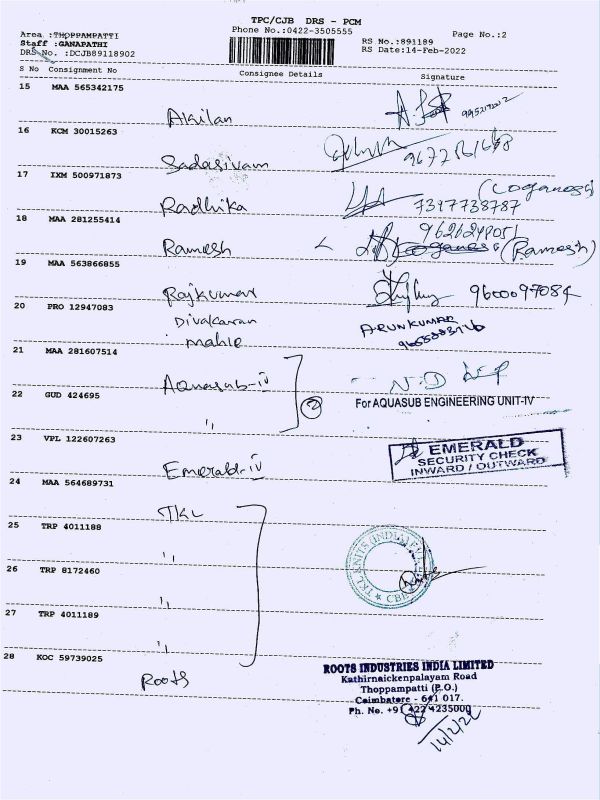 TPC/CJB DRS - PCM
Area :THOPPAMPATTI
Phone No.:0422-3505555
Page No.:2
Staff :GANAPATHI
RS No.:891189
DRS No. :DCJB89118902
RS Date:14-Feb-2022
S No Consignment No Consignee Details Signature
15 MAA 565342175
Akilan
16 KCM 30015263
Sadasivam
17 IXM 500971873
(Loganesh)
Radhika 7397738787
18 MAA 281255414
9626248051
Ramesh (Ramesh)
19 MAA 563866855
Rajkumar 9600097084
20 PRO 12947083
Divakaran A.RUNKUMAR
mahle
21 MAA 281607514
Aquasub-iv N.D
22 GUD 424695
2
For AQUASUB ENGINEERING UNIT-IV
"
23 VPL 122607263
EMERALD
SECURITY CHECK
INWARD / OUTWARD
Emerald-iv
24 MAA 564689731
TKL
25 TRP 4011188
TKL KNITS (INDIA)
"
26 TRP 8172460
"
27 TRP 4011189
"
28 KOC 59739025
Roots
ROOTS INDUSTRIES INDIA LIMITED
Kathirnaickenpalayam Road
Thoppampatti (P.O.)
Coimbatore - 641 017.
Ph. No. +91 422 4235000
14/2/22